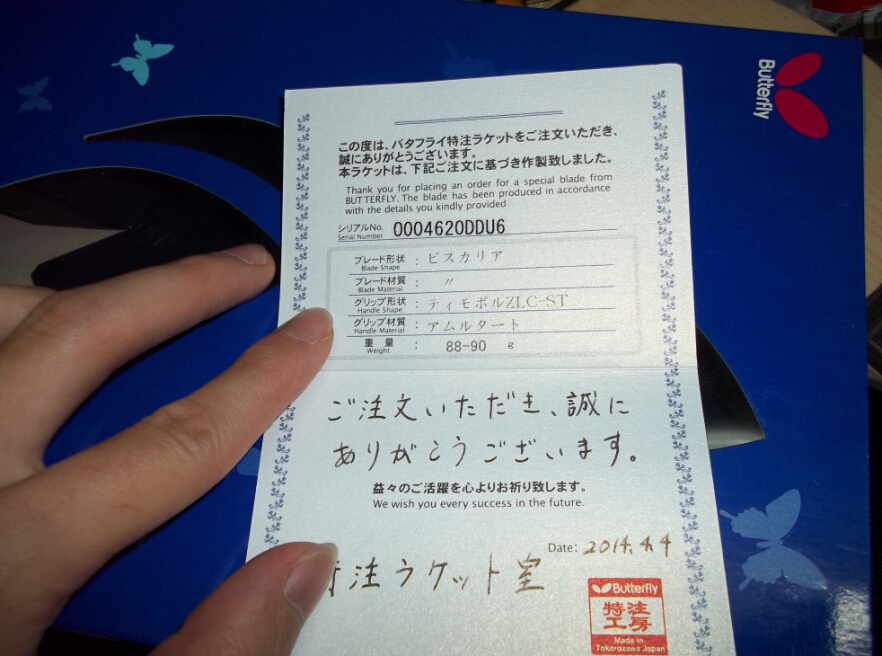 Butterfly
この度は、バタフライ特注ラケットをご注文いただき、
誠にありがとうございます。
本ラケットは、下記ご注文に基づき作製致しました。
Thank you for placing an order for a special blade from
BUTTERFLY. The blade has been produced in accordance
with the details you kindly provided.
シリアルNo. 0004620DDU6
Serial Number
ブレード形状 : ビスカリア
Blade Shape
ブレード材質 : 〃
Blade Material
グリップ形状 : ティモボルZLC-ST
Handle Shape
グリップ材質 : アムルタート
Handle Material
重量 : 88-90 g
Weight
ご注文いただき、誠に
ありがとうございます。
益々のご活躍を心よりお祈り致します。
We wish you every success in the future.
Date: 2014.4.4
注ラケット室
Butterfly
特注
工房
Made in
Tokorozawa Japan